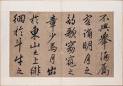 不興舉酒屬
客誦明月之
詩歌窈窕之
章少焉月出
於東山之上徘
徊於斗牛之